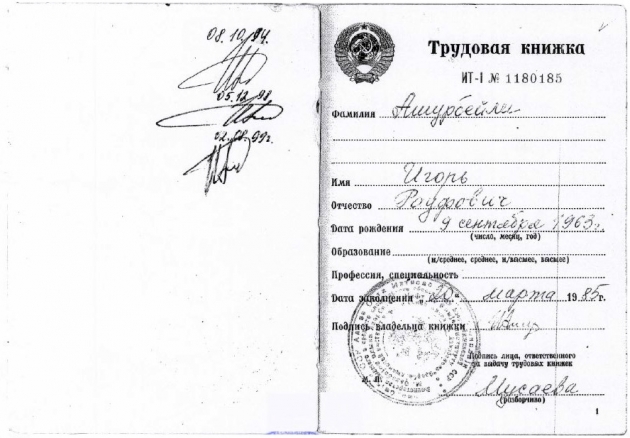 08.10.94.
05.12.98
02.08.99г.
Трудовая книжка
ИТ-I № 1180185
Фамилия Ашурбейли
Имя Игорь
Отчество Рауфович
Дата рождения 9 сентября 1963 г.
(число, месяц, год)
Образование
(н/среднее, среднее, н/высшее, высшее)
Профессия, специальность
Дата заполнения „20" марта 1985г.
Подпись владельца книжки
Подпись лица, ответственного
за выдачу трудовых книжек
М. П.
Мусаева
(разборчиво)
1